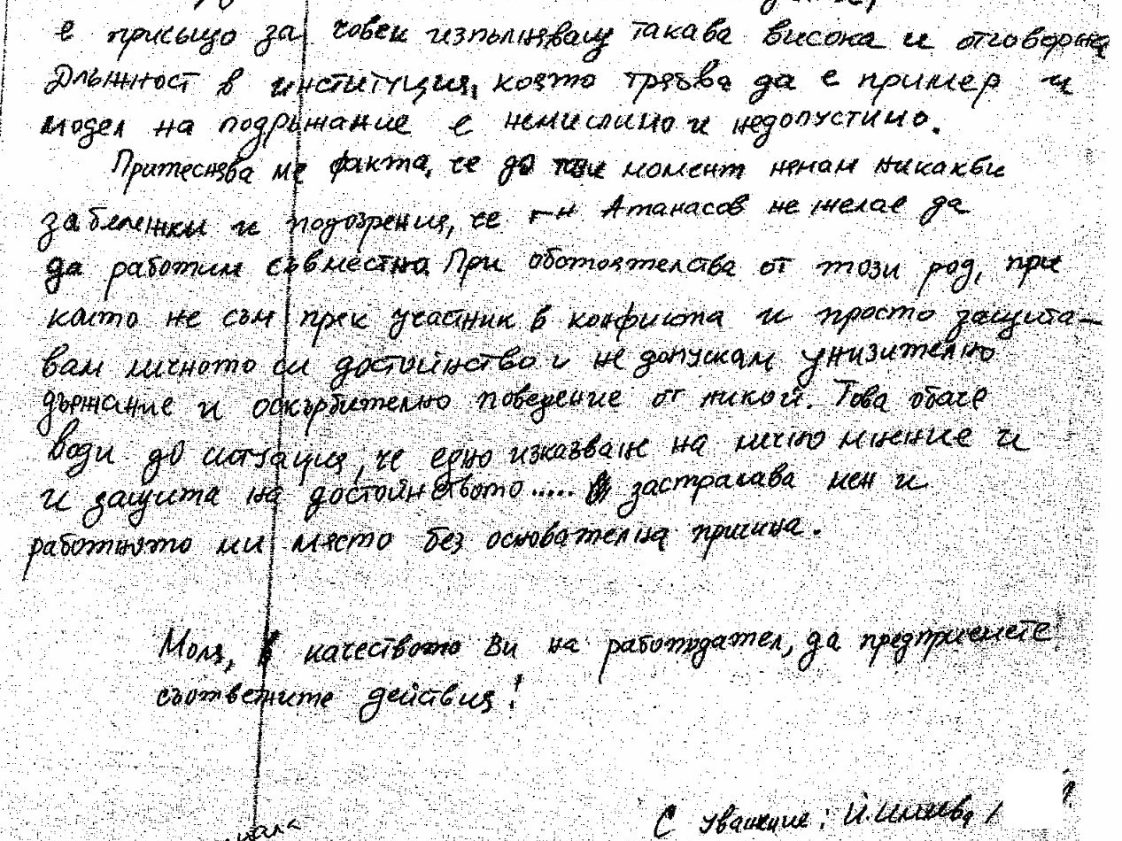 е присъщо за човек изпълняващ такава висока и отговорна
длъжност в институция, която трябва да е пример и
модел на подръжание е немислимо и недопустимо.
Притеснява ме факта, че до този момент немам никакви
забележки и подозрения, че г-н Атанасов не желае да
да работим съвместно. При обстоятелства от този род, при
които не съм прек участник в конфликта и просто защита-
вам личното си достойнство и не допускам унизително
държание и оскърбително поведение от никой. Това обаче
води до ситуация, че едно изказване на лично мнение и
и защита на достойнството..... застрашава мен и
работното ми място без основателна причина.
Моля, в качеството Ви на работодател, да предприемете
съответните действия!
С уважение: Й.